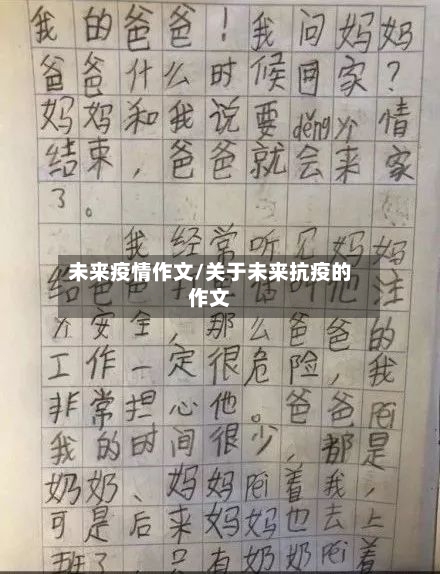 我的爸爸！我问妈妈
爸爸什么时候回家？
妈妈和我说要děng 情
结束，爸爸就会来家
了。
我经常听 妈妈
给爸爸打电话叫他注
安全，那么爸爸的
工作一定很危险，我
非常担心他。爸爸Péi
我的时间很少，都是
奶奶、妈妈Péi着我，
可是后来妈妈也去上
班了，只有奶奶Péi着
未来疫情作文/关于未来抗疫的
作文